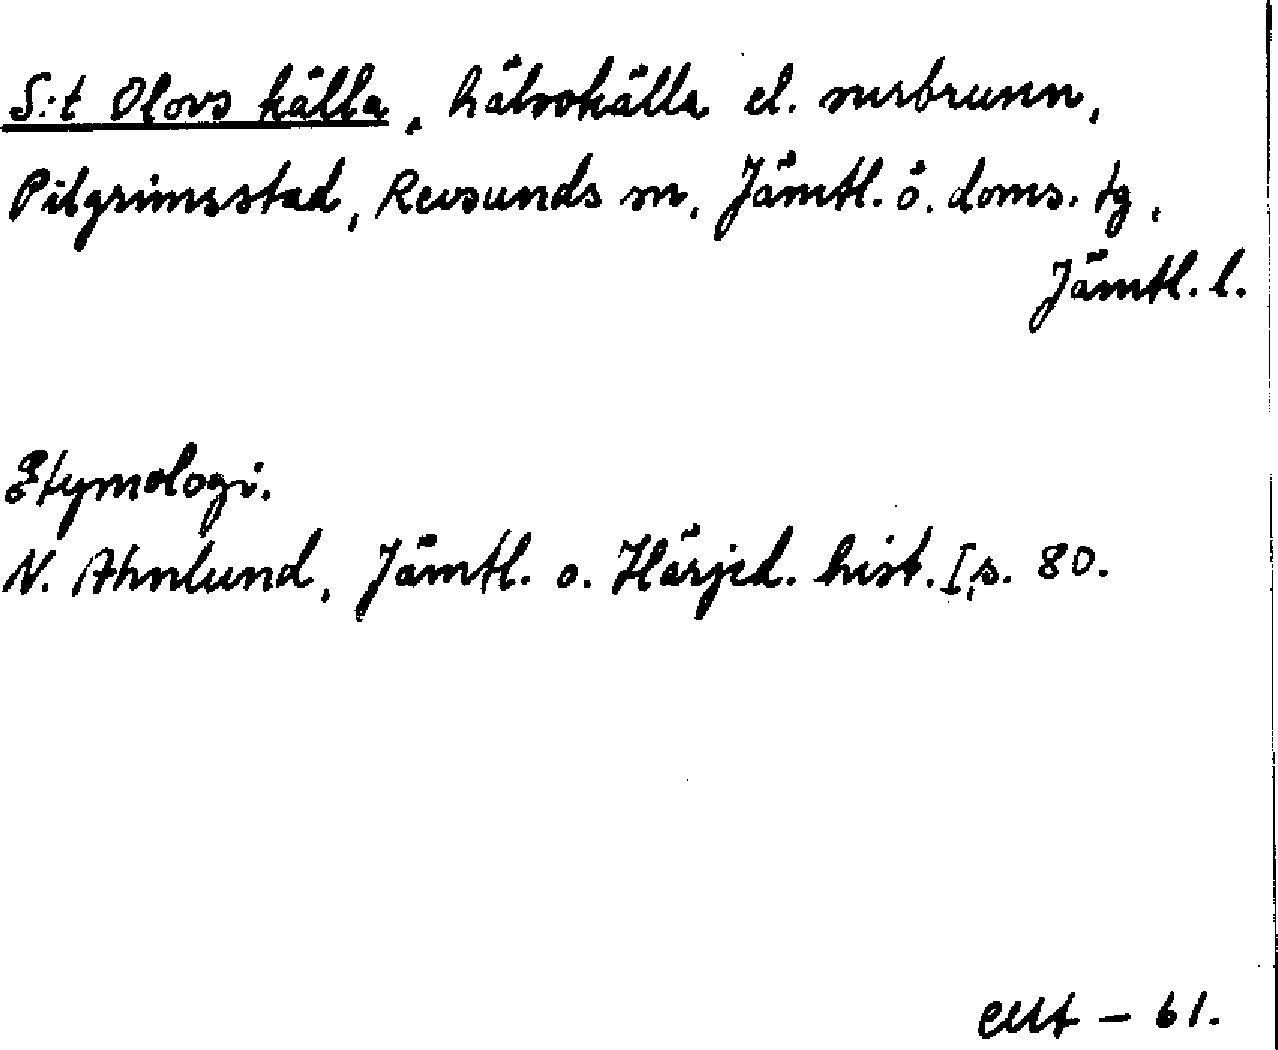 S:t Olovs källa, hälsokälla el. surbrunn,
Pilgrimsstad, Revsunds sn, Jämtl. ö. doms. tg,
Jämtl. l.
Etymologi.
N. Ahnlund, Jämtl. o. Härjed. hist. I, s. 80.
– 61.